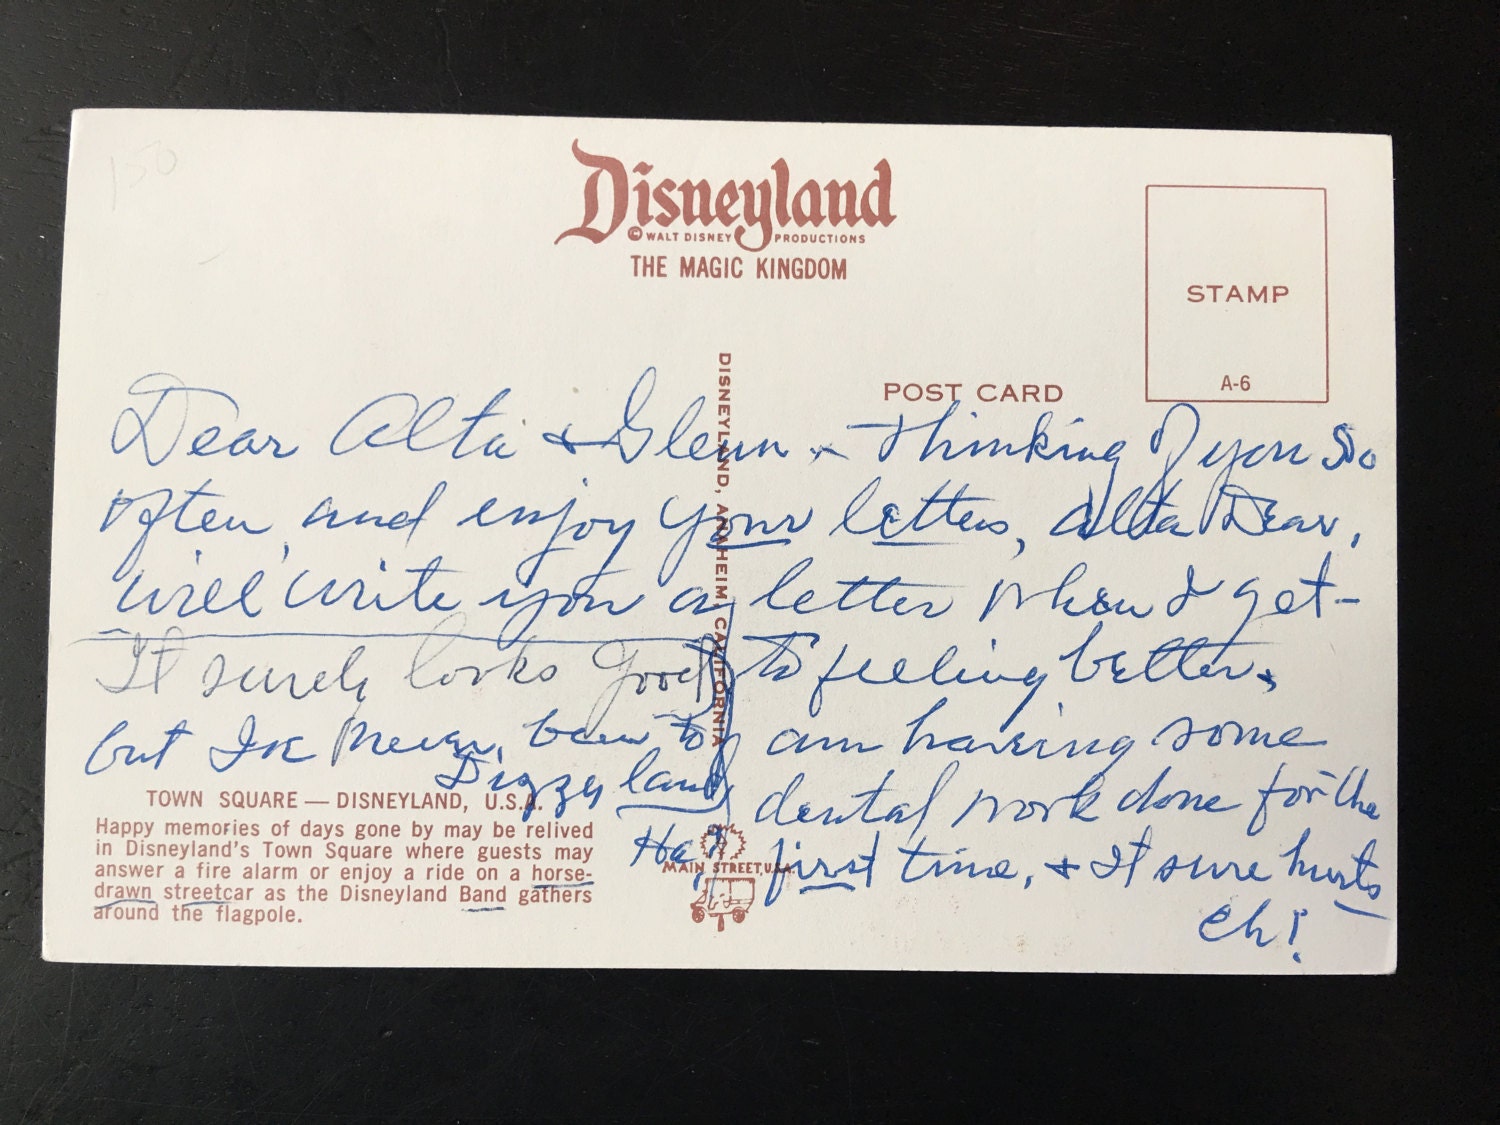 150
Disneyland
© WALT DISNEY PRODUCTIONS
THE MAGIC KINGDOM
STAMP
A-6
POST CARD
DISNEYLAND, ANAHEIM, CALIFORNIA
Dear Alta & Glenn - thinking of you so
often, and enjoy your letters, Alta Dear,
will write you a letter when I get-
to feeling better,
am having some
dental work done for the
first time, & It sure hurts
eh!
It surely looks good
but I've never been to
Dizzyland
Ha!
TOWN SQUARE — DISNEYLAND, U.S.A.
Happy memories of days gone by may be relived
in Disneyland's Town Square where guests may
answer a fire alarm or enjoy a ride on a horse-
drawn streetcar as the Disneyland Band gathers
around the flagpole.
MAIN STREET, U.S.A.